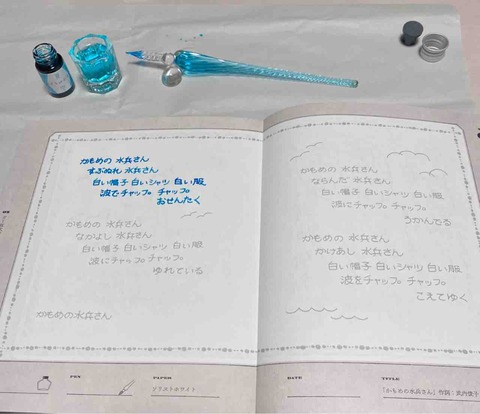 かもめの 水兵さん
ずぶぬれ 水兵さん
白い帽子 白いシャツ 白い服
波でチャップ チャップ
おせんたく
かもめの 水兵さん
なかよし 水兵さん
白い帽子 白いシャツ 白い服
波にチャップ チャップ
ゆれている
かもめの水兵さん
PEN
PAPER
アラストホワイト
かもめの 水兵さん
ならんだ 水兵さん
白い帽子 白いシャツ 白い服
波にチャップ チャップ
うかんでる
かもめの 水兵さん
かけあし 水兵さん
白い帽子 白いシャツ 白い服
波をチャップ チャップ
こえてゆく
DATE
TITLE
「かもめの水兵さん」作詞：武内俊子